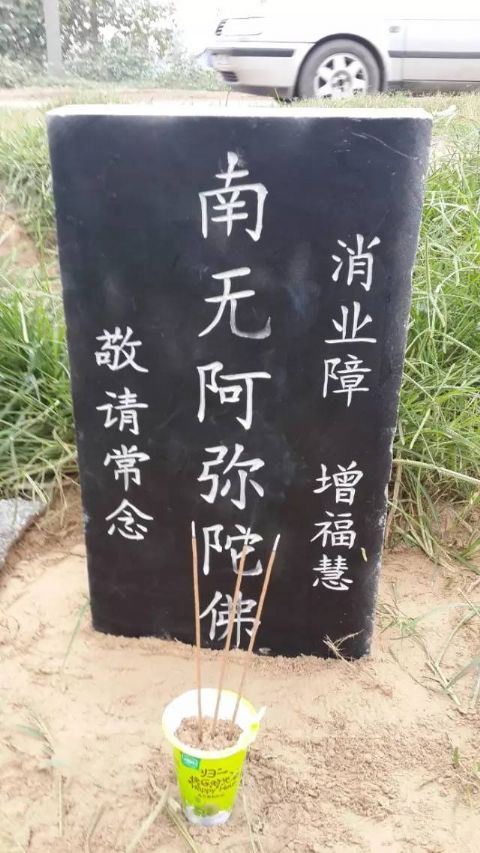 消业障 增福慧
南无阿弥陀佛
敬请常念
归一
Happy